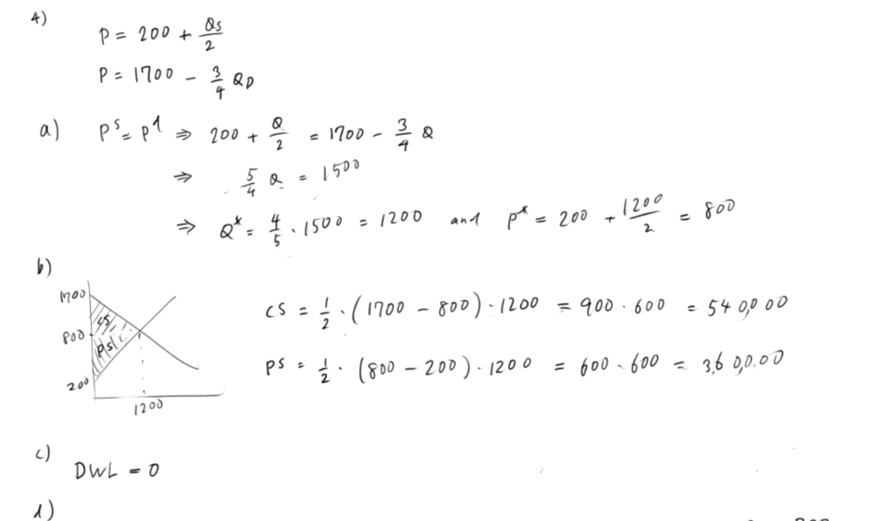 4)
P = 200 + Qs/2
P = 1700 - 3/4 QD
a) P^s = P^d ⇒ 200 + Q/2 = 1700 - 3/4 Q
⇒ 5/4 Q = 1500
⇒ Q* = 4/5 · 1500 = 1200 and P* = 200 + 1200/2 = 800
b)
1700
CS
800
PS
200
1200
CS = 1/2 · (1700 - 800) · 1200 = 900 · 600 = 540,000
PS = 1/2 · (800 - 200) · 1200 = 600 · 600 = 360,000
c)
DWL = 0
d)